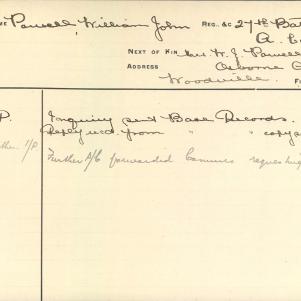 Powell, William John REG. &C 27th Bat
A. Co
NEXT OF KIN W. J. Powell
ADDRESS Osborne
Woodville.
P. Inquiry sent Base Records.
Reply recd. from " " copy
1/P Further A/C forwarded Commrs requesting